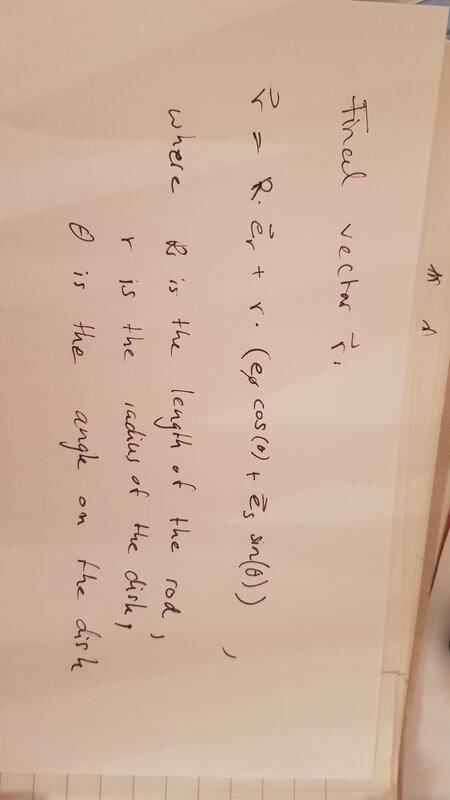 Final vector r⃗.
r⃗ = R · e⃗r + r · (eφ cos(θ) + e⃗s sin(θ)) ,
where R is the length of the rod,
r is the radius of the disk,
θ is the angle on the disk